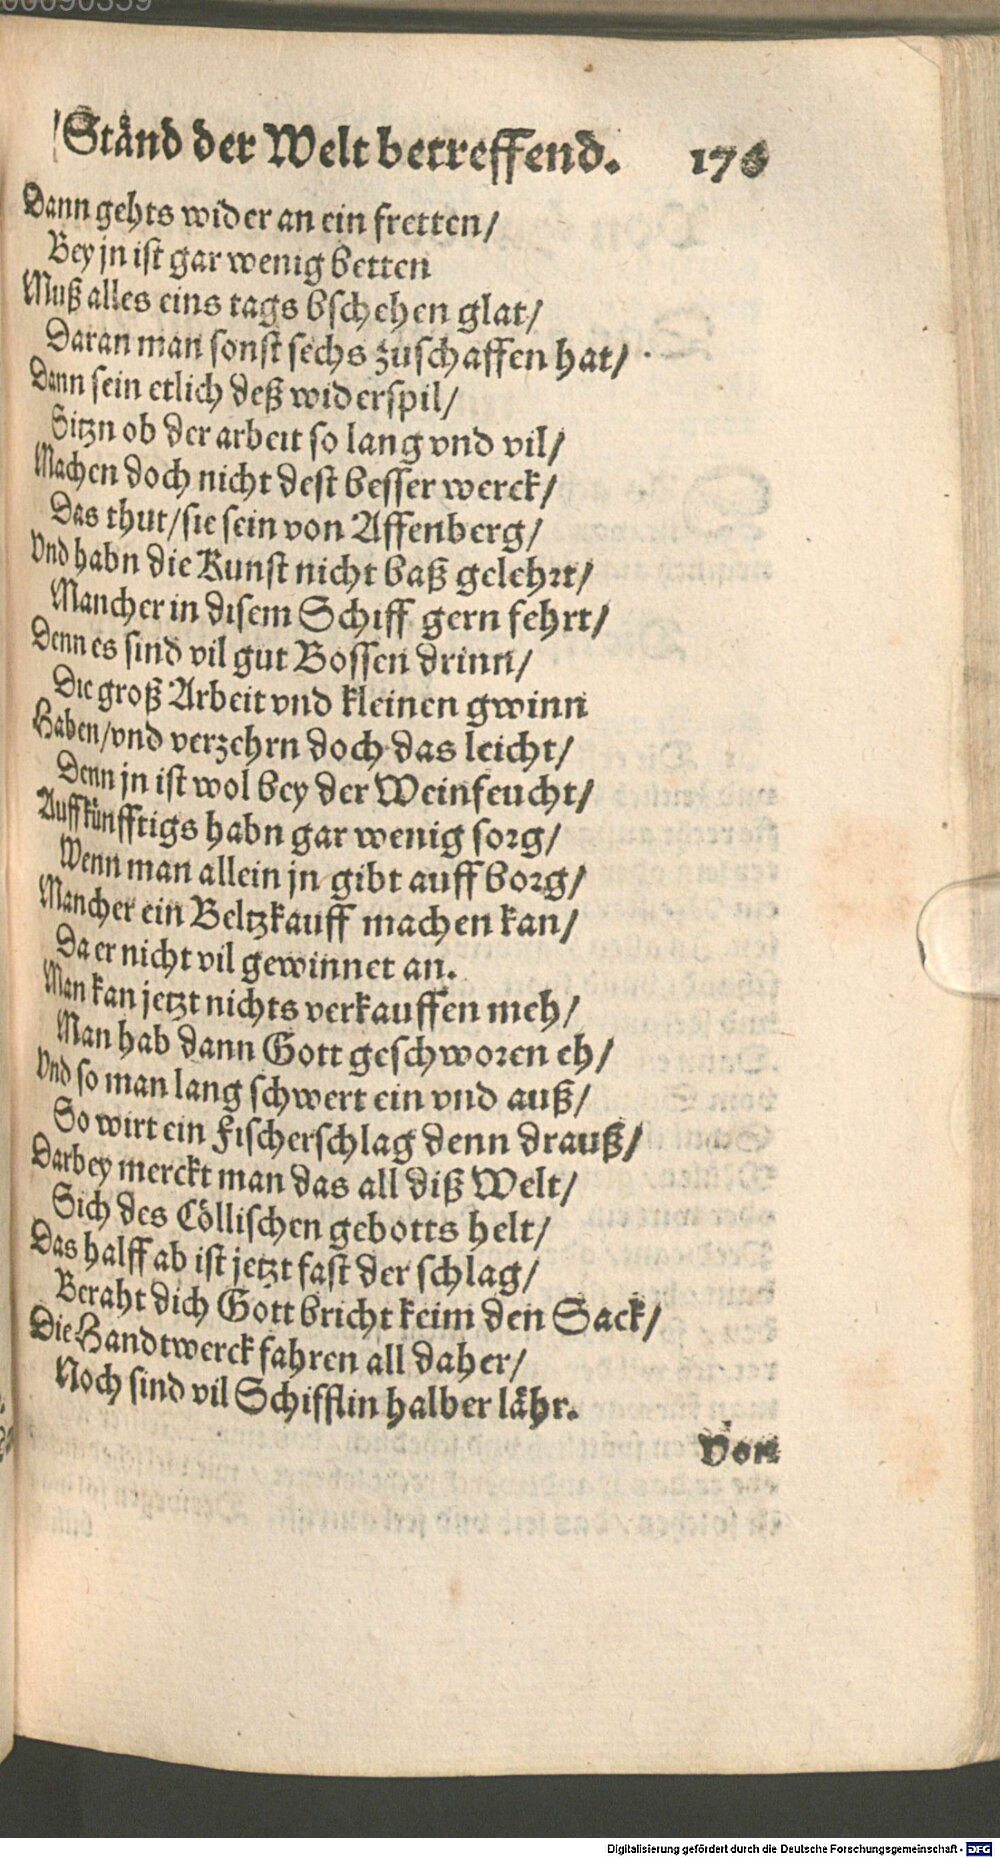 00090359
Ständ der Welt betreffend. 176
Dann gehts wider an ein fretten/
Bey jn ist gar wenig betten
Muß alles eins tags bschehen glat/
Daran man sonst sechs zuschaffen hat/
Dann sein etlich deß widerspil/
Sitzn ob der arbeit so lang vnd vil/
Machen doch nicht dest besser werck/
Das thut/sie sein von Affenberg/
Vnd habn die Kunst nicht baß gelehrt/
Mancher in disem Schiff gern fehrt/
Denn es sind vil gut Bossen drinn/
Die groß Arbeit vnd kleinen gwinn
Haben/vnd verzehrn doch das leicht/
Denn jn ist wol bey der Weinfeucht/
Auff künfftigs habn gar wenig sorg/
Wenn man allein jn gibt auff borg/
Mancher ein Beltzkauff machen kan/
Da er nicht vil gewinnet an.
Man kan jetzt nichts verkauffen meh/
Man hab dann Gott geschworen eh/
Vnd so man lang schwert ein vnd auß/
So wirt ein Fischerschlag denn drauß/
Darbey merckt man das all diß Welt/
Sich des Cöllischen gebotts helt/
Das halff ab ist jetzt fast der schlag/
Beraht dich Gott bricht keim den Sack/
Die Handtwerck fahren all daher/
Noch sind vil Schifflin halber lähr.
Von
Digitalisierung gefördert durch die Deutsche Forschungsgemeinschaft - DFG